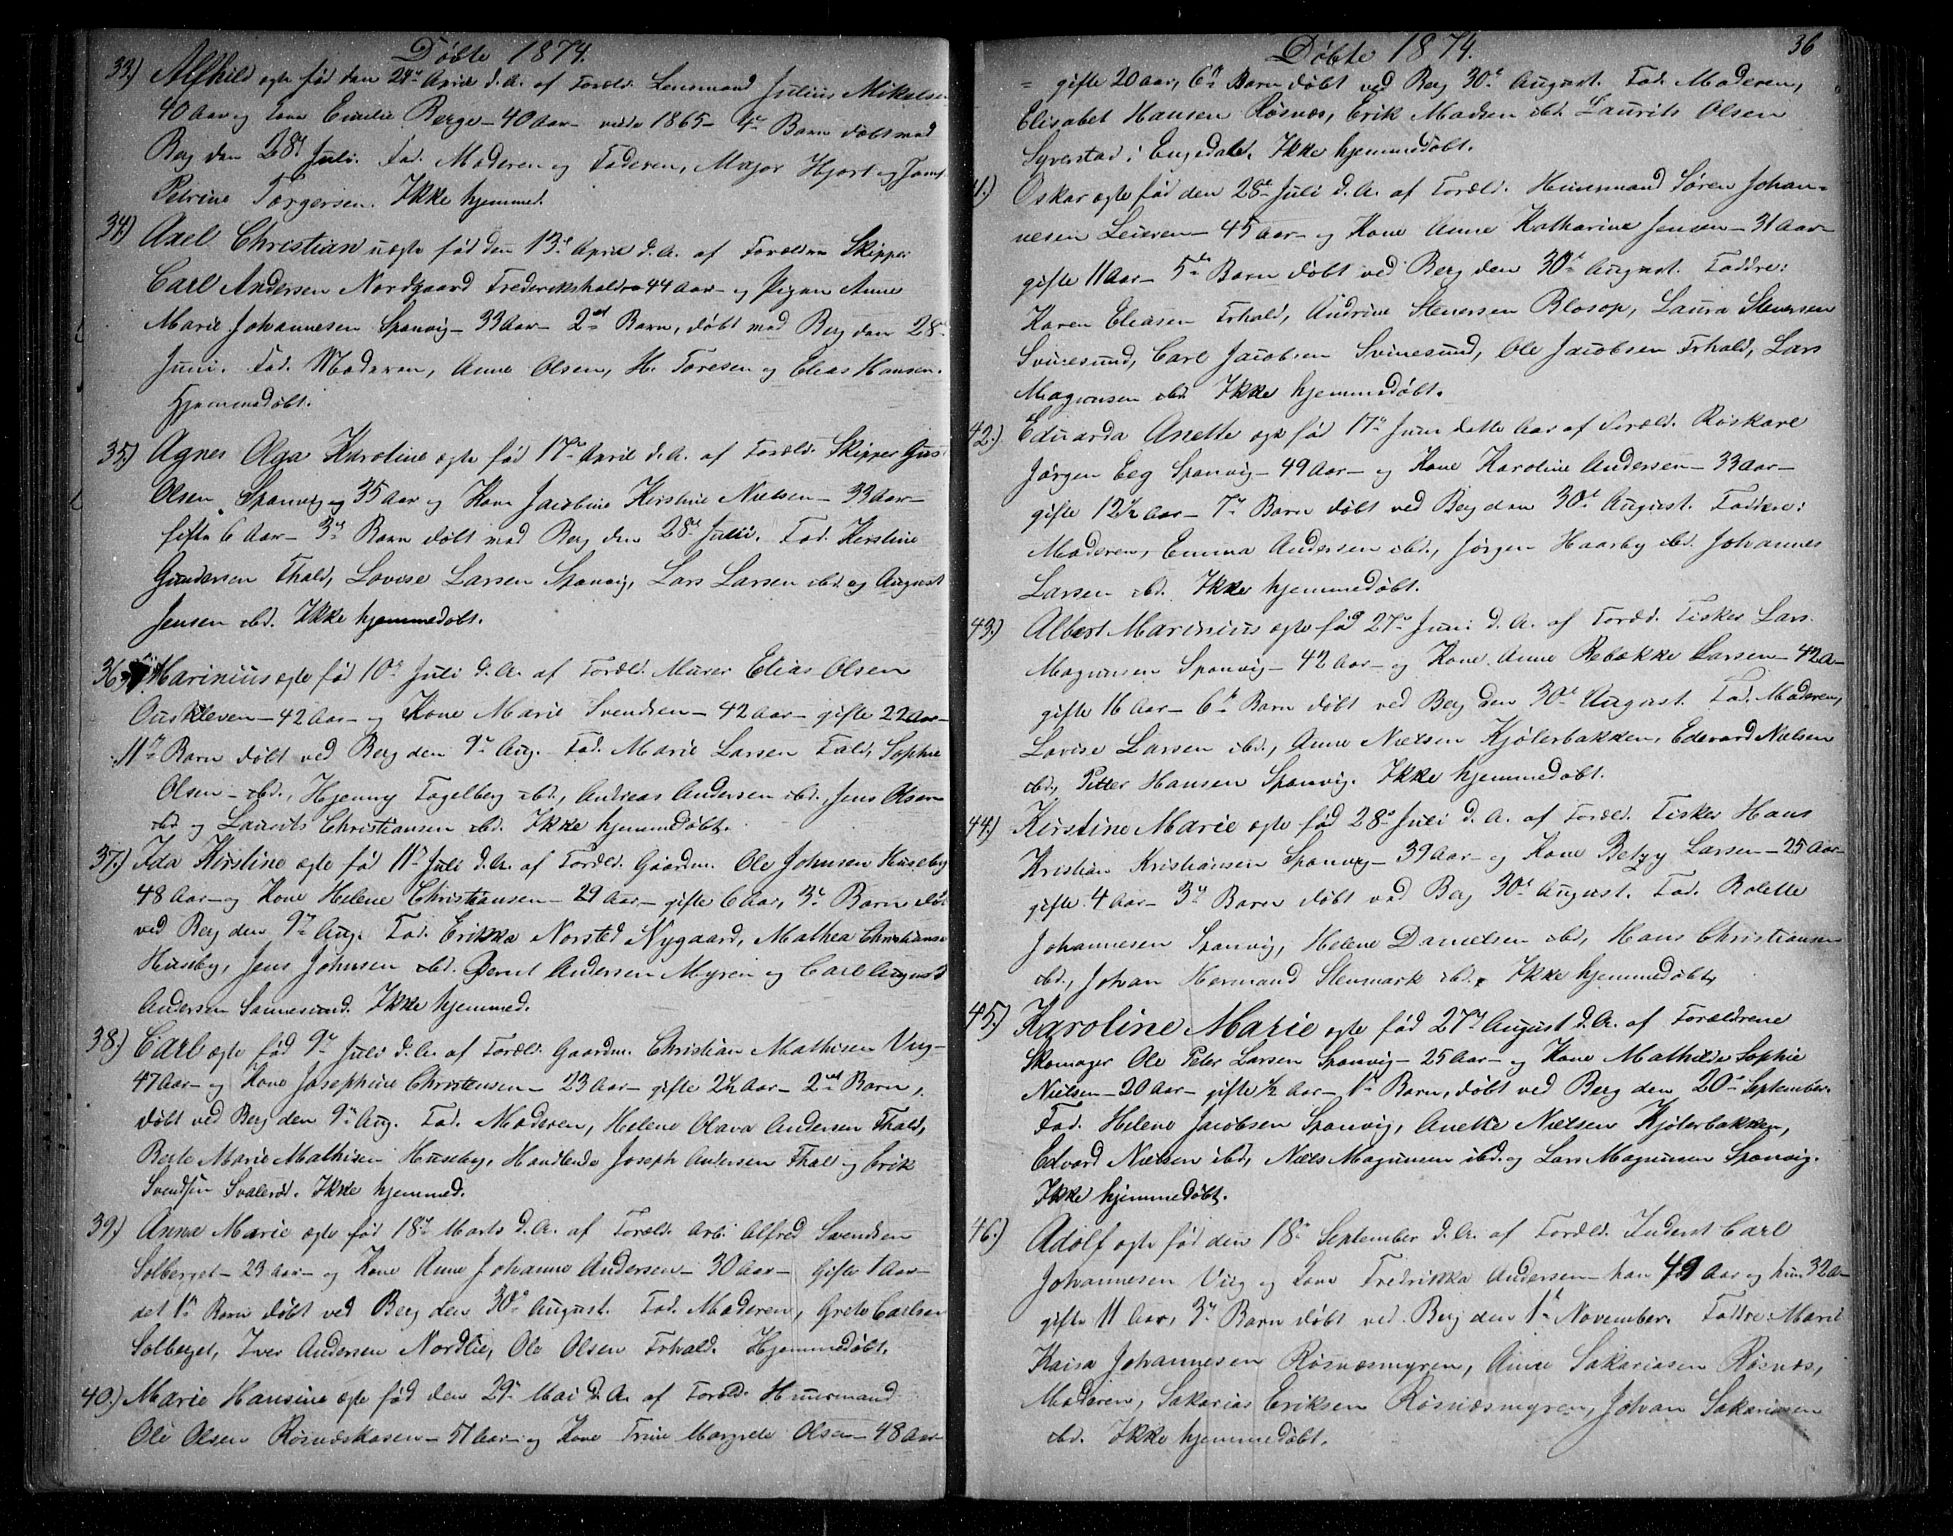 Döbte 1874.
33.) Alfhild ægte fød den 29de April d.A. af Foræld. Lensmand Julius Mikelsen
40 Aar og Kone Emilie Berge – 40 Aar – viede 1865 – 4de Barn döbt ved
Berg den 28de Juli. Fad. Moderen og Faderen, Major Hjort og Jomf.
Petrine Torgersen. Ikke hjemmed.
34.) Axel Christian uægte fød den 13de April d.A. af Forældre Skipper
Carl Andersen Nordgaard Frederikshald 44 Aar – og Pigen Anne
Marie Johannesen Sponvig – 33 Aar – 2det Barn, döbt ved Berg den 28de
Juni. Fad. Moderen, Anne Olsen, H. Toresen og Elias Hansen.
Hjemmedöbt.
35.) Agnes Olga Karoline ægte fød 17de April d.A. af Foræld. Skipper Gus.
Olsen Sponvig 35 Aar og Kone Jacobine Kirstine Nielsen – 33 Aar –
gifte 6 Aar – 3de Barn döbt ved Berg den 28de Juli. Fad. Kirstine
Gundersen Fhald, Lovise Larsen Sponvig, Lars Larsen ibd og August
Jensen ibd. Ikke hjemmedöbt.
36.) Marinius ægte fød 10de Juli d.A. af Foræld. Murer Elias Olsen
Ouskleven – 42 Aar – og Kone Marie Svendsen – 42 Aar – gifte 22 Aar –
11te Barn döbt ved Berg den 9de Aug. Fad. Marie Larsen Fald, Sophie
Olsen – ibd., Hjenny Fogelberg ibd., Andreas Andersen ibd., Jens Olsen
ibd og Laurits Christiansen ibd. Ikke hjemmedöbt.
37.) Ida Kirstine ægte fø 11te Juli d.A. af Foræld. Gaardm. Ole Johnsen Huseby
48 Aar – og Kone Helene Christiansen – 29 Aar – gifte 6 Aar, 3de Barn döbt
ved Berg den 9de Aug. Fad. Erikka Norsted Nygaard, Mathea Christianse
Huseby, Jens Johnsen ibd. Bernt Andersen Myren og Carl August
Andersen Sannesund. Ikke hjemmed.
38.) Carl ægte fød 9de Juli d.A. af Foræld. Gaardm. Christian Mathisen Viig –
47 Aar – og Kone Josephine Christensen – 23 Aar – gifte 2½ Aar – 2det Barn,
döbt ved Berg den 9de Aug. Fad. Moderen, Helene Olava Andersen Fhald,
Berte Marie Mathisen Huseby, Handlende Joseph Andersen Fhal og Erik
Svendsen Svaleröd. Ikke hjemmed.
39.) Anna Marie ægte fød 18de Marts d.A. af Foræld. Arb. Alfred Svendsen
Solberget – 23 Aar – og Kone Anne Johanne Andersen – 30 Aar – Gifte 1 Aar –
det 1ste Barn döbt ved Berg den 30te August. Fad. Moderen, Grete Carlsen
Solberget, Iver Andersen Nordlie, Ole Olsen Frhald. Hjemmedöbt.
40.) Marie Hansine ægte fød den 29de Mai d.A. af Foræld. Huusmand
Ole Olsen Rösnæskasen – 51 Aar – og Kone Trine Margrete Olsen – 48 Aar –
Döbte 1874. 36
= gifte 20 Aar, 6te Barn döbt ved Berg 30te August. Fad. Moderen,
Elisabet Hansen Rösnæs, Erik Madsen ibd. Laurits Olsen
Syverstad i Engedal. Ikke hjemmedöbt.
41.) Oskar ægte fød den 28de Juli d.A. af Foræld. Huusmand Sören Johan=
nesen Leieren – 45 Aar – og Kone Anne Katharine Jensen – 31 Aar –
gifte 11 Aar – 5te Barn döbt ved Berg den 30te August. Faddre:
Karen Eliasen Frhald, Andrine Stenersen Blosop, Laura Stenersen
Svinesund, Carl Jacobsen Svinesund, Ole Jacobsen Frhald, Lars
Magnusen ibd. Ikke hjemmedöbt.
42.) Eduarda Anette ægte fød 17de Juni dette Aar af Foræld. Röskarl
Jörgen Eeg Sponvig – 49 Aar – og Kone Karoline Andersen – 33 Aar –
gifte 12½ Aar – 7de Barn döbt ved Berg den 30te August. Faddre:
Moderen, Emma Andersen ibd., Jörgen Haarby ibd. Johannes
Larsen ibd. Ikke hjemmedöbt.
43.) Albert Marinius ægte fød 27de Juni d.A. af Foræld. Fisker Lars
Magnusen Sponvig – 42 Aar – og Kone Anne Rebække Larsen – 42 A –
gifte 16 Aar – 6te Barn döbt ved Berg den 30te August. Fad. Moderen,
Lovise Larsen ibd., Anne Nielsen Kjölerbakken, Edevard Nielsen
ibd, Petter Hansen Sponvig. Ikke hjemmedöbt.
44.) Kirstine Marie ægte fød 28de Juli d.A. af Foræld. Fisker Hans
Kristian Kristiansen Sponvig – 39 Aar – og Kone Betzy Larsen – 25 Aar –
gifte 4 Aar – 3de Barn döbt ved Berg 30te August. Fad. Rolette
Johannesen Sponvig, Helene Danielsen ibd, Hans Christiansen
ibd., Johan Hermand Stenmark ibd. Ikke hjemmedöbt,
45.) Karoline Marie ægte fød 27de August d.A. af Forældrene
Skomager Ole Peter Larsen Sponvig – 25 Aar – og Kone Mathilde Sophie
Nielsen – 20 Aar – gifte ½ Aar – 1ste Barn, döbt ved Berg den 20de September.
Fad. Helene Jacobsen Sponvig, Anette Nielsen Kjölerbakken,
Edvard Nielsen ibd, Niels Magnusen ibd. og Lars Magnusen Sponvig.
Ikke hjemmedöbt.
46.) Adolf ægte fød den 18de September d.A. af Foræld. Inderst Carl
Johannesen Viig og Kone Fredrikka Andersen – han 49 Aar og hun 32 A –
gifte 11 Aar, 3de Barn döbt ved Berg den 1ste November. Faddre: Marie
Kaisa Johannesen Rösnæsmyren, Anne Sakariasen Rösnæs,
Moderen, Sakarias Eriksen Rösnæsmyren, Johan Sakariasen
ibd. Ikke hjemmedöbt.